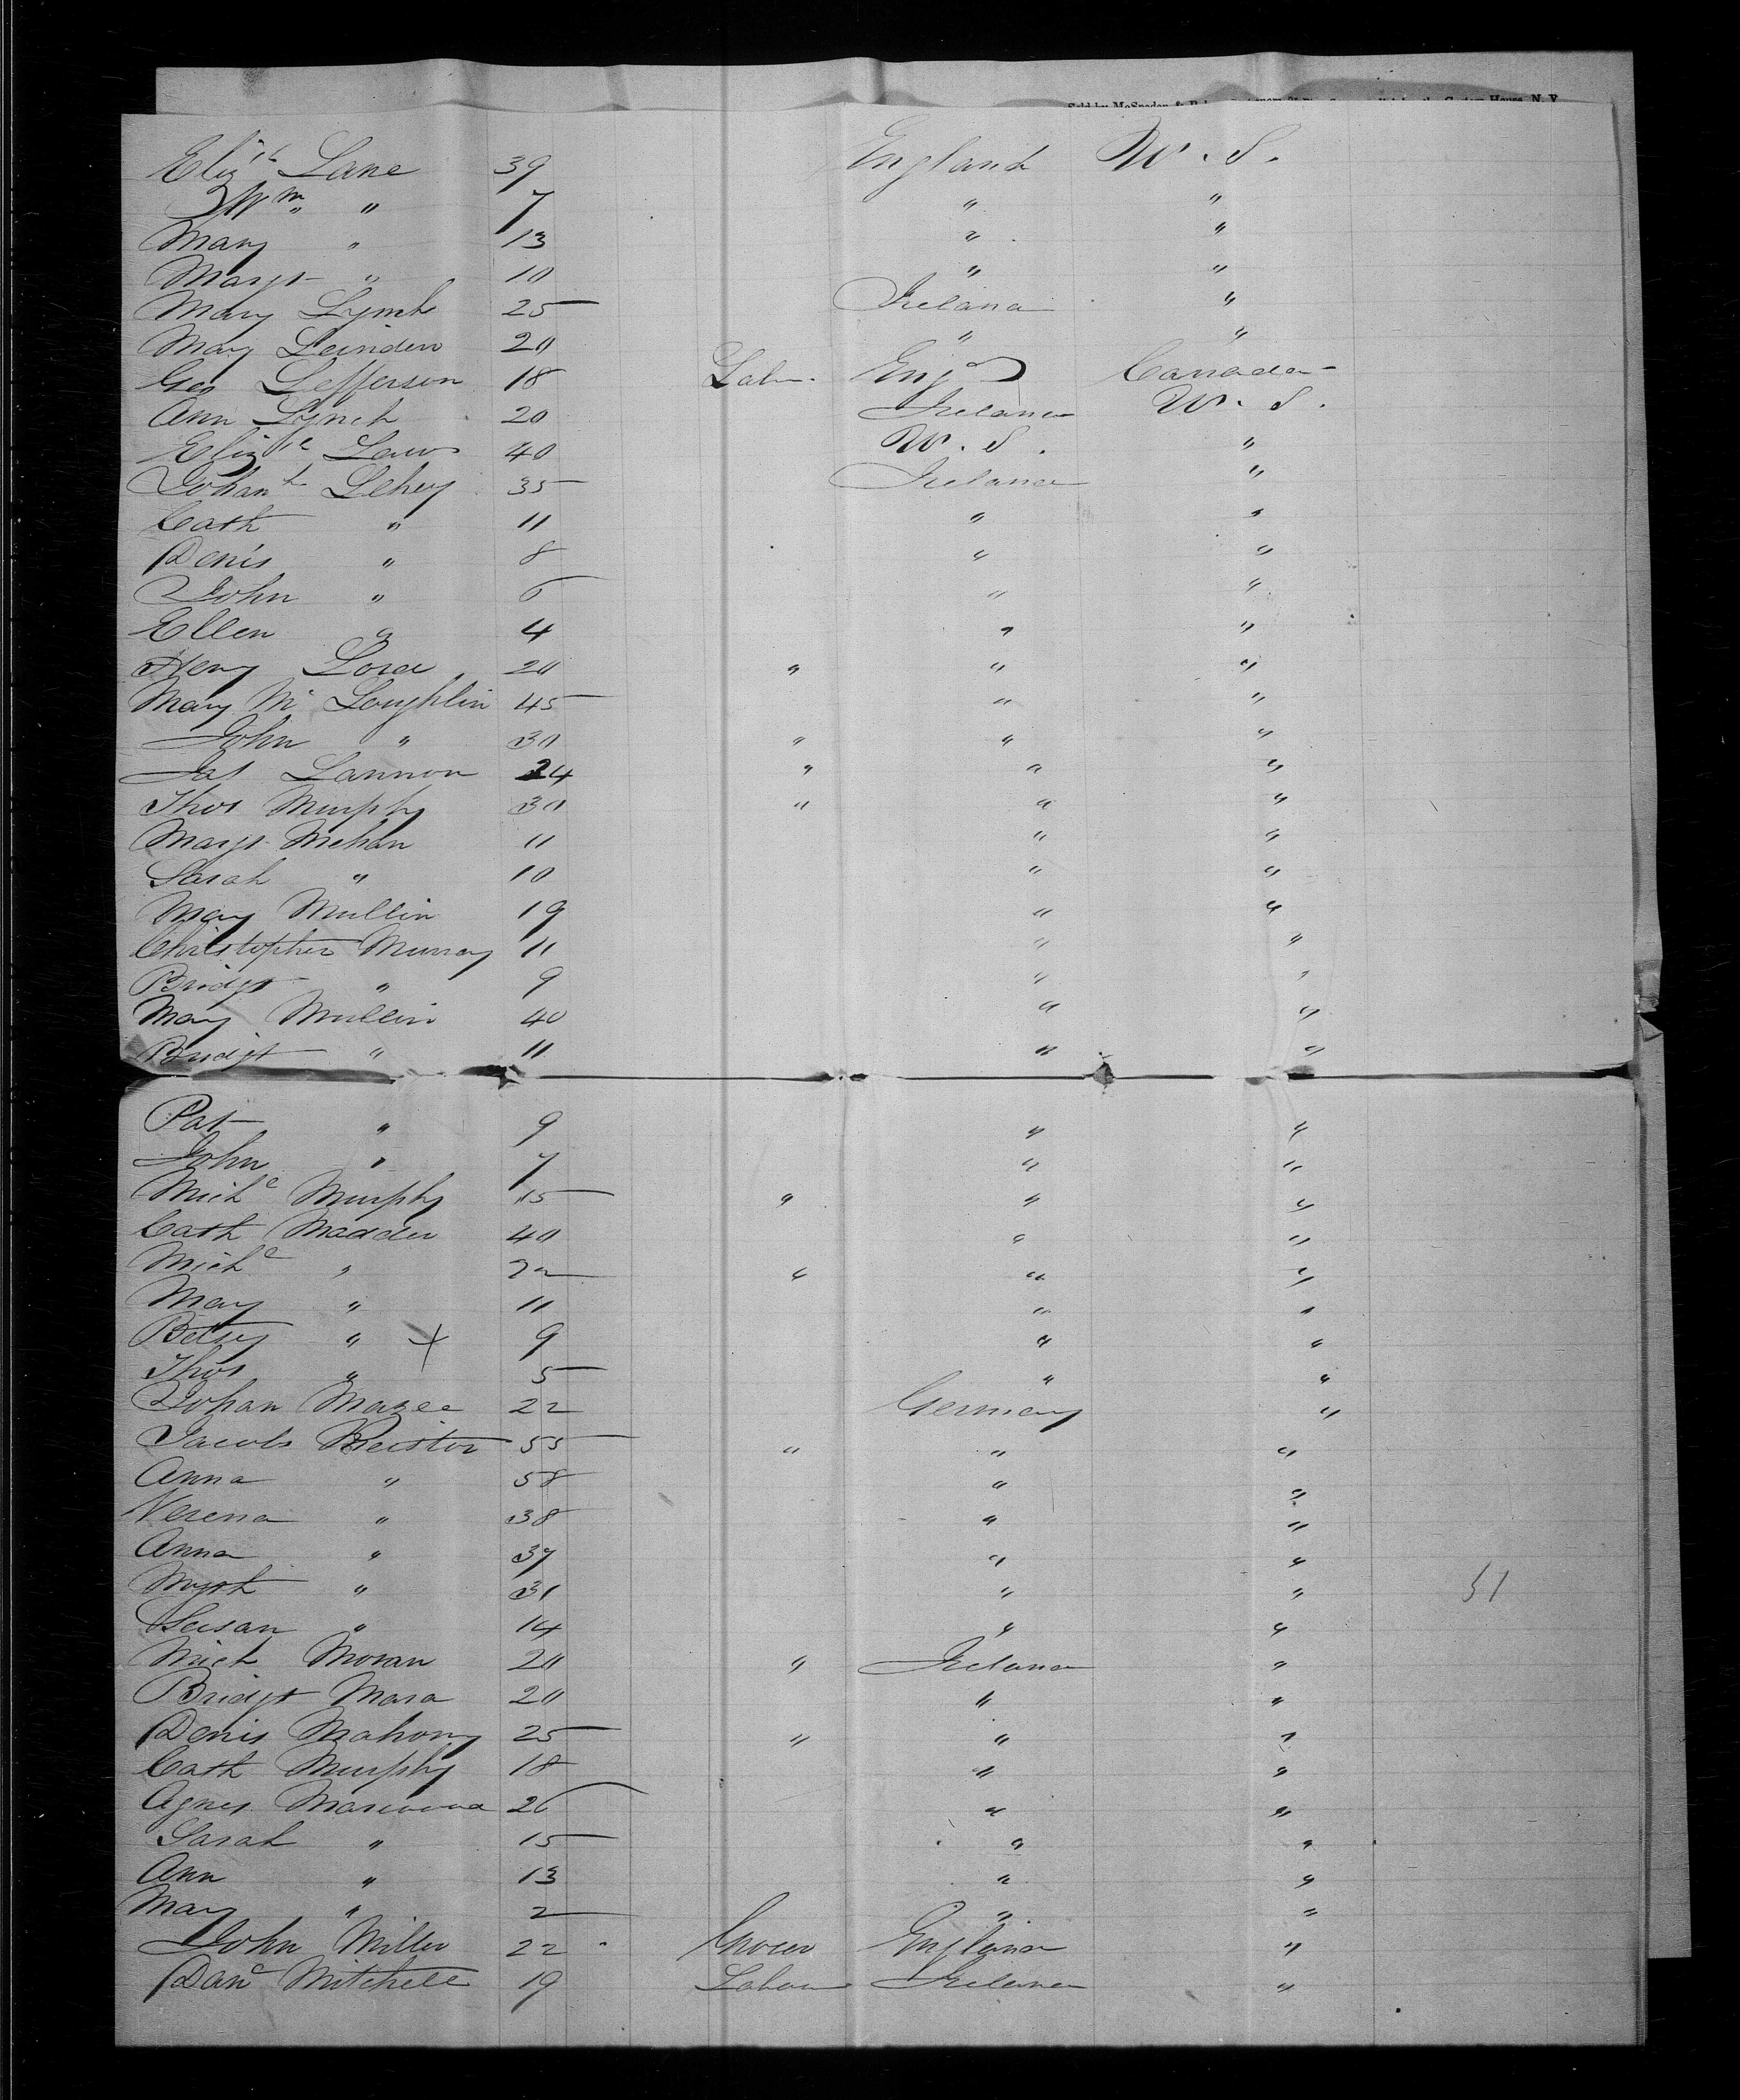 Sold by McSpedon & Baker Custom House, N. Y.
Elizth Lane 39 England U. S.
Wm " 7 " "
Mary " 13 " "
Margt " 10 " "
Mary Lynch 25 Ireland "
Mary 20 " "
Geo Lefferson 18 Labr. Engd Canada
Ann Lynch 20 Ireland U. S.
Elizth Laws 40 U. S. "
Johanh Lehey 35 Ireland "
Cath " 11 " "
Denis " 8 " "
John " 6 " "
Ellen " 4 " "
Henry Lord 20 " " "
Mary Mc Loughlin 45 " "
John " 30 " " "
Jas Lannon 24 " " "
Thos Murphy 30 " " "
Margt Mehan 11 " "
Sarah " 10 " "
Mary Mullin 19 " "
Christopher Murray 11 " "
Bridgt " 9 " "
Mary Mullin 40 " "
Bridgt " 11 " "
Pat " 9 " "
John " 7 " "
Michl Murphy 15 " " "
Cath Madden 40 " "
Michl " 22 " " "
Mary " 11 " "
Betsey " + 9 " "
Thos " 5 " "
Johan Mazee 22 Germany "
Jacob 55 " " "
Anna " 58 " "
Verena " 38 " "
Anna " 37 " "
" 31 " " 51
Susan " 14 " "
Mich Moran 20 " Ireland "
Bridgt Mara 20 " "
Denis Mahony 25 " " "
Cath Murphy 18 " "
Agnes 26 " "
Sarah " 15 " "
Ann " 13 " "
Mary " 2 " "
John Miller 22 Grocer England "
Danl Mitchell 19 Labour Ireland "